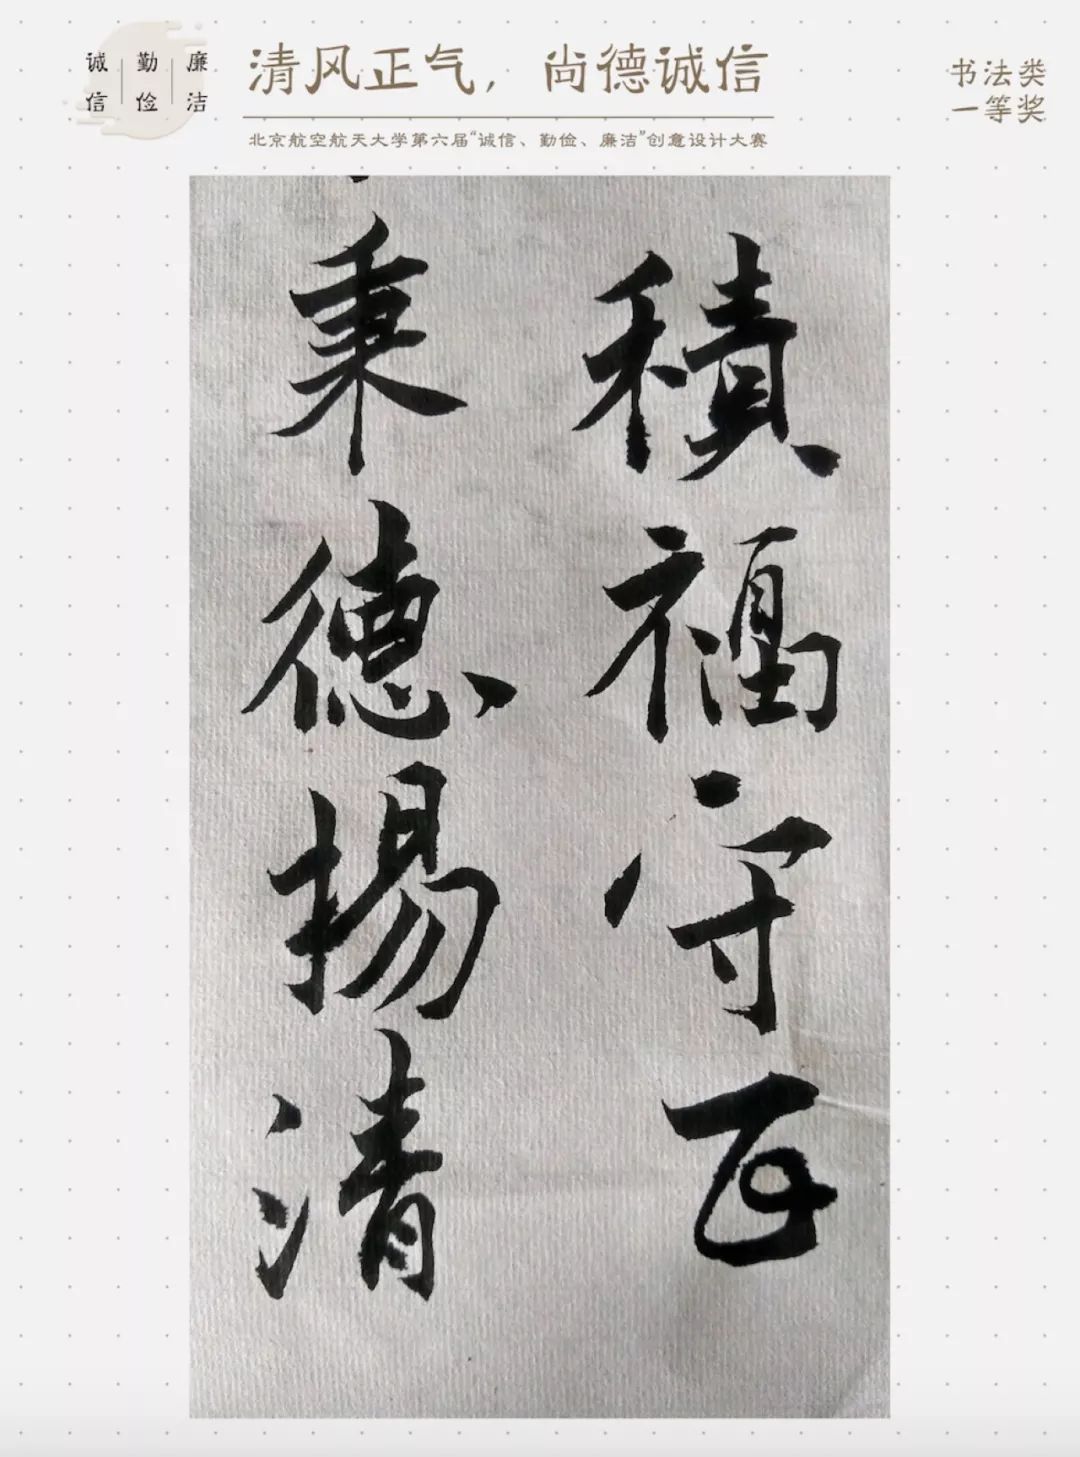 诚信
勤俭
廉洁
清风正气，尚德诚信
北京航空航天大学第六届“诚信、勤俭、廉洁”创意设计大赛
书法类
一等奖
積福守正
秉德揚清